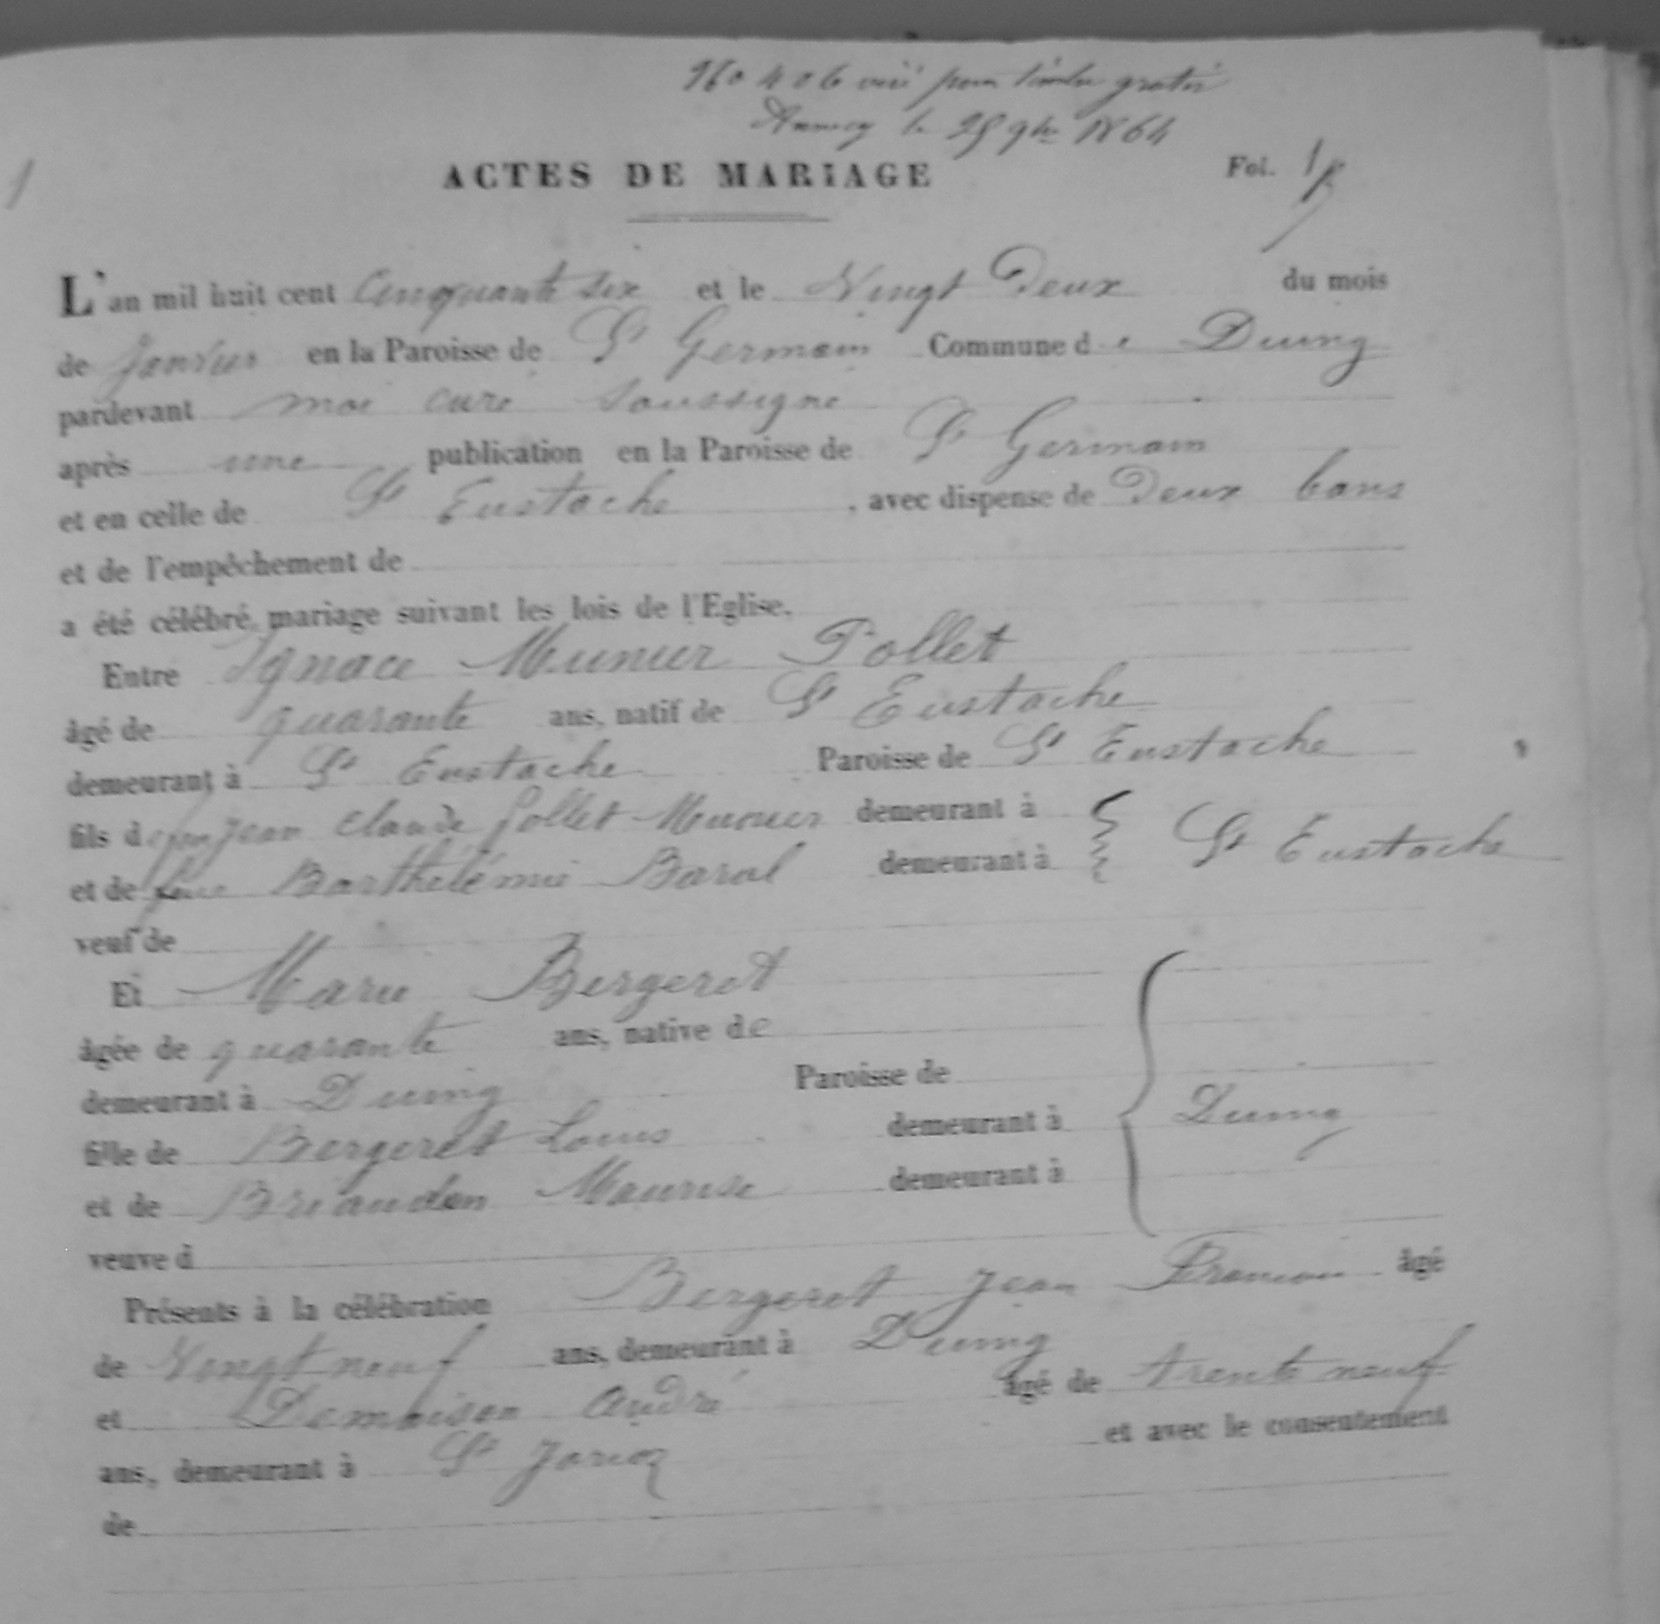 visé pour timbre gratis
Annecy le 25 9bre 1864
1
ACTES DE MARIAGE
Fol. 1
L'an mil huit cent Cinquante six et le Vingt Deux du mois
de Janvier en la Paroisse de St Germain Commune de Duing
pardevant moi curé soussigné
après une publication en la Paroisse de St Germain
et en celle de St Eustache, avec dispense de Deux bans
et de l'empêchement de
a été célébré mariage suivant les lois de l'Eglise,
Entre Ignace Munier Pollet
âgé de quarante ans, natif de St Eustache
demeurant à St Eustache Paroisse de St Eustache
fils de feu Jean Claude Pollet Munier demeurant à
et de feue Barthélémie Baral demeurant à St Eustache
veuf de
Et Marie Bergeret
âgée de quarante ans, native de
demeurant à Duing Paroisse de
fille de Bergeret Louis demeurant à Duing
et de Briandon Maurise demeurant à
veuve d
Présents à la célébration Bergeret Jean François âgé
de Vingt neuf ans, demeurant à Duing
et Demaison André âgé de trente neuf
ans, demeurant à St Jorioz et avec le consentement
de